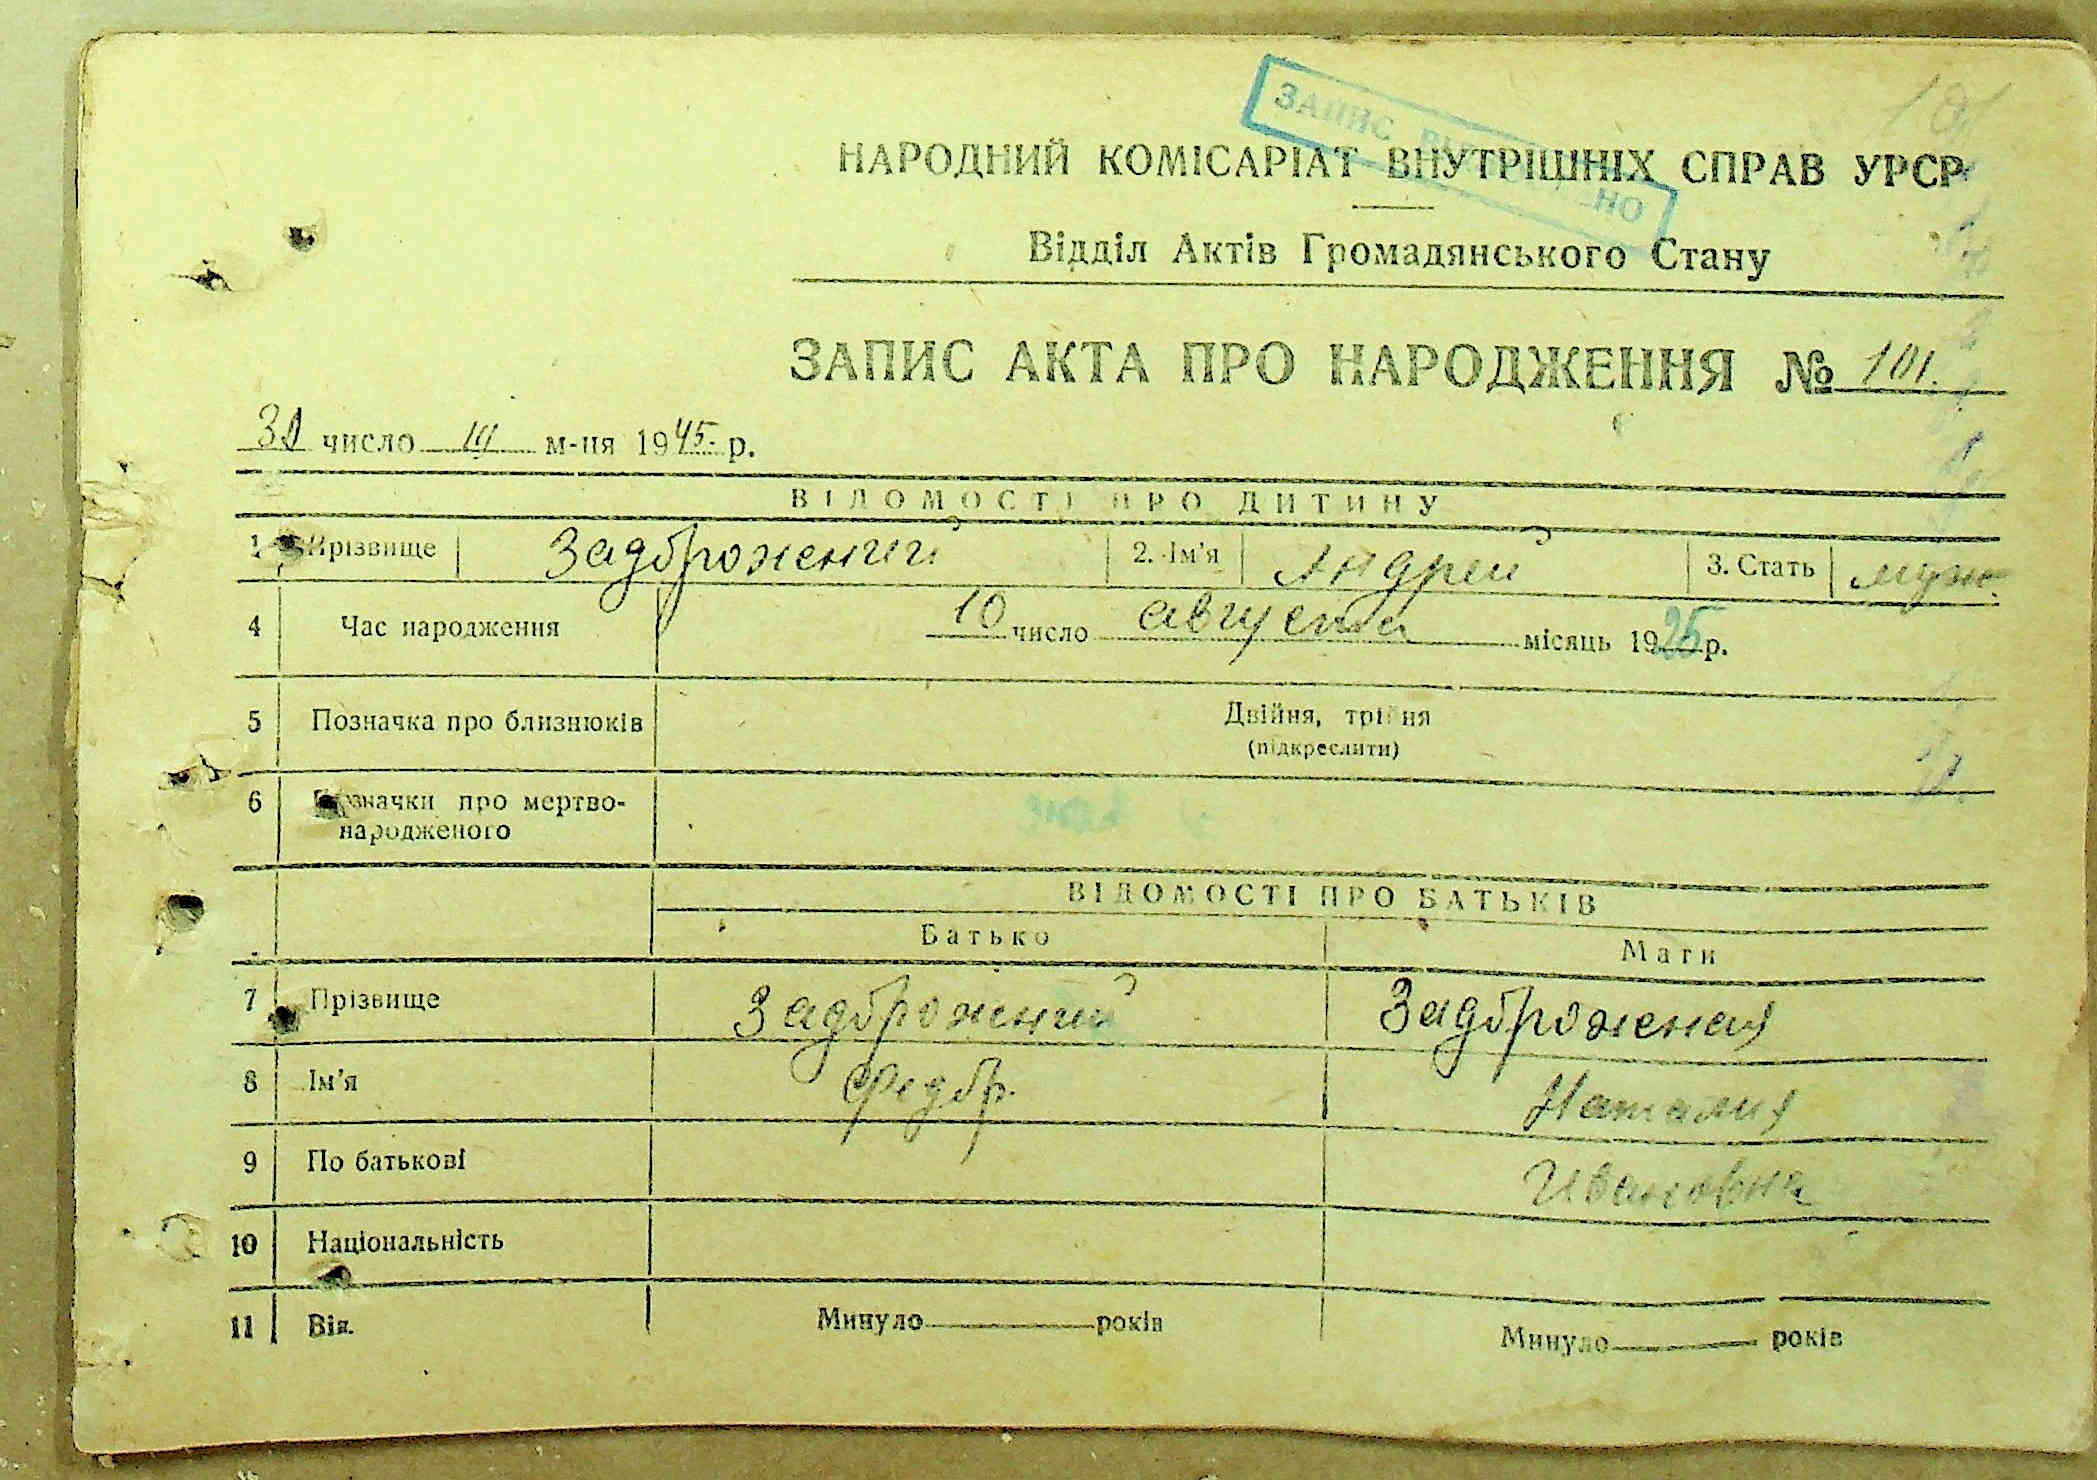 ЗАПИС ВІ НО
НАРОДНИЙ КОМІСАРІАТ ВНУТРІШНІХ СПРАВ УРСР
Відділ Актів Громадянського Стану
ЗАПИС АКТА ПРО НАРОДЖЕННЯ № 101.
30 число III м-ця 1945 р.
ВІДОМОСТІ ПРО ДИТИНУ
1 Прізвище Задброжений 2. Ім'я Андрей 3. Стать муж.
4 Час народження 10 число августа місяць 1925 р.
5 Позначка про близнюків Двійня, трійня
(підкреслити)
6 Позначки про мертво-
народженого
ВІДОМОСТІ ПРО БАТЬКІВ
Батько Мати
7 Прізвище Задброжений Задброженая
8 Ім'я Федбр. Наталия
9 По батькові Ивановна
10 Національність
11 Вік. Минуло років Минуло років